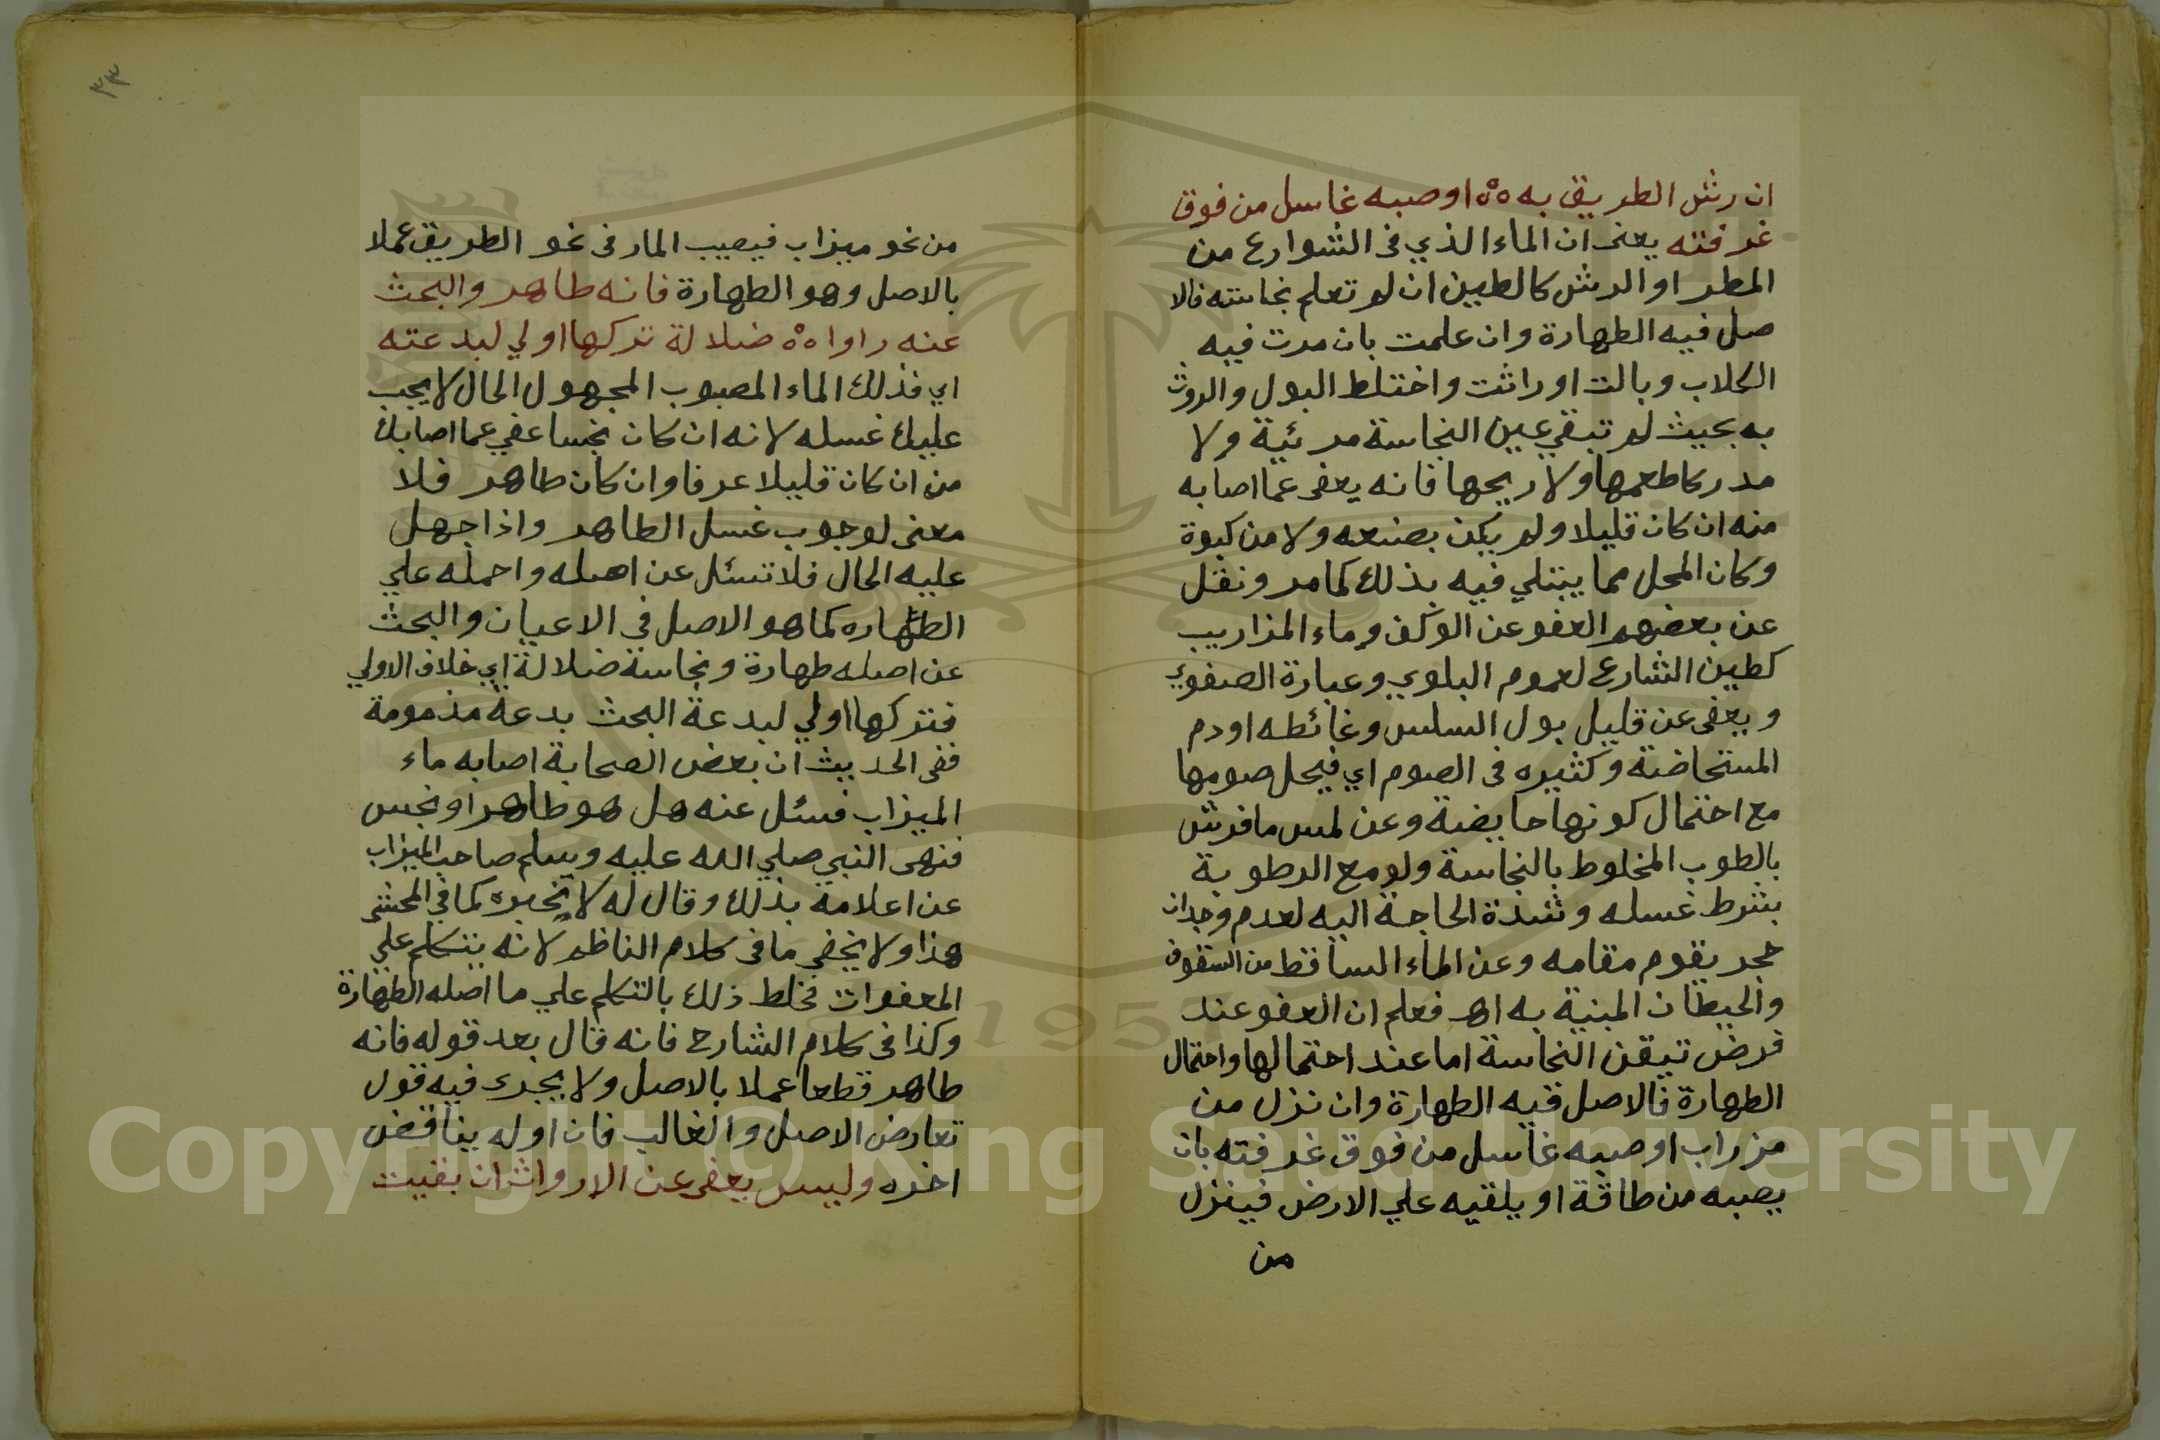 ان رش الطريق به ه°ه اوصبه غاسل من فوق
غرفته يعنى ان الماء الذي فى الشوارع من
المطر او الرش كالطين ان لم تعلم نجاسته فالا
صل فيه الطهارة وان علمت بان مرت فيه
الكلاب وبالت او راثت واختلط البول والروث
به بحيث لم تبقي عين النجاسة مرئية ولا
مدركا طعمها ولا ريحها فانه يعفى عما اصابه
منه ان كان قليلا ولم يكن بصنعه ولا من كبوة
وكان المحل مما يبتلي فيه بذلك كما مر ونقل
عن بعضهم العفو عن الوكف وماء المزاريب
كطين الشارع لعموم البلوي وعبارة الصفوي
ويعفى عن قليل بول السلس وغائطه او دم
المستحاضة وكثيره فى الصوم اي فيحل صومها
مع احتمال كونها حايضة وعن لمس ما فرش
بالطوب المخلوط بالنجاسة ولو مع الرطوبة
بشرط غسله وشدة الحاجة اليه لعدم وجدان
حجر يقوم مقامه وعن الماء الساقط من السقوف
والحيطان المبنية به اهـ فعلم ان العفو عند
فرض تيقن النجاسة اما عند احتمالها واحتمال
الطهارة فالاصل فيه الطهارة وان نزل من
مزراب اوصبه غاسل من فوق غرفته بان
يصبه من طاقة او يلقيه علي الارض فينزل
من
٣٣
من نحو ميزاب فيصيب المار فى نحو الطريق عملا
بالاصل وهو الطهارة فانه طاهر والبحث
عنه راوا ه°ه ضلالة تركها اولي لبدعته
اي فذلك الماء المصبوب المجهول الحال لا يجب
عليك غسله لانه ان كان نجسا عفي عما اصابك
من ان كان قليلا عرفا وان كان طاهر فلا
معنى لوجوب غسل الطاهر واذا جهل
عليه الحال فلا تسئل عن اصله واحمله علي
الطهاره كما هو الاصل في الاعيان والبحث
عن اصله طهارة ونجاسة ضلالة اي خلاف الاولي
فتركها اولي لبدعة البحث بدعة مذمومة
ففى الحديث ان بعض الصحابة اصابه ماء
الميزاب فسئل عنه هل هو طاهر او نجس
فنهى النبي صلي الله عليه وسلم صاحب الميزاب
عن اعلامه بذلك وقال له لا تخبره كما في المحشى
هذا ولا يخفى ما فى كلام الناظم لانه يتكلم علي
المعفوات فخلط ذلك بالتكلم علي ما اصله الطهارة
وكذا فى كلام الشارح فانه قال بعد قوله فانه
طاهر قطعا عملا بالاصل ولا يجرى فيه قول
تعارض الاصل والغالب فان اوله يناقض
اخره وليس يعفى عن الارواث ان بقيت
Copyright © King Saud University
1957